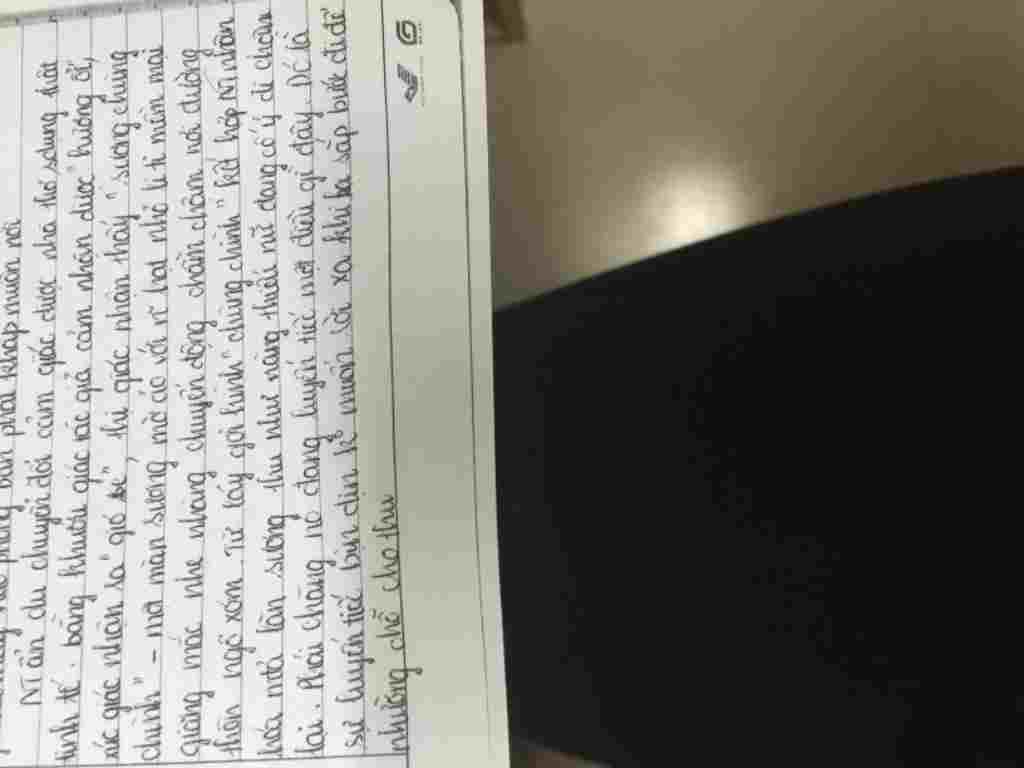 phải khắp muôn nơi
Nt ẩn dụ chuyển đổi cảm giác được nhà thơ sdụng rất
tinh tế. bằng khứu giác tác giả cảm nhận được "hương ổi",
xúc giác nhận ra "gió se", thị giác nhận thấy "sương chùng
chình" - một màn sương mờ ảo với vô hạt nhỏ li ti mềm mại
giăng mắc nhẹ nhàng chuyển động chầm chậm nơi đường
thôn ngõ xóm. Từ láy gợi hình "chùng chình" kết hợp Nt nhân
hóa nửa làn sương thu như nàng thiếu nữ đang cố ý đi chậm
lại. Phải chăng nó đang luyến tiếc nơi đầu gì đây. Đó là
sự luyến tiếc bịn rịn k muốn rời xa khi hạ sắp bước đi để
nhường chỗ cho thu